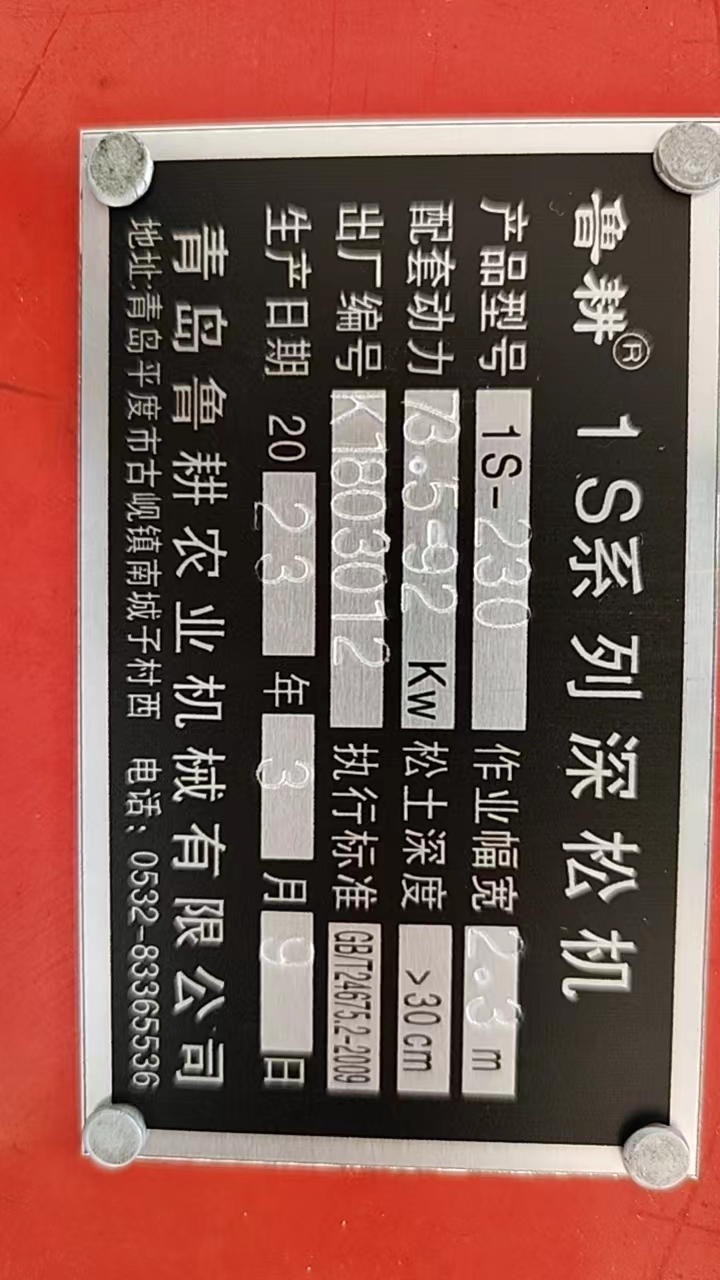 鲁耕® 1S系列深松机
产品型号 1S-230 作业幅宽 2.3 m
配套动力 73.5-92 Kw 松土深度 >30cm
出厂编号 K1803012 执行标准 GB/T24675.2-2009
生产日期 2023年3月9日
青岛鲁耕农业机械有限公司
地址:青岛平度市古岘镇南城子村西 电话：0532-83365536